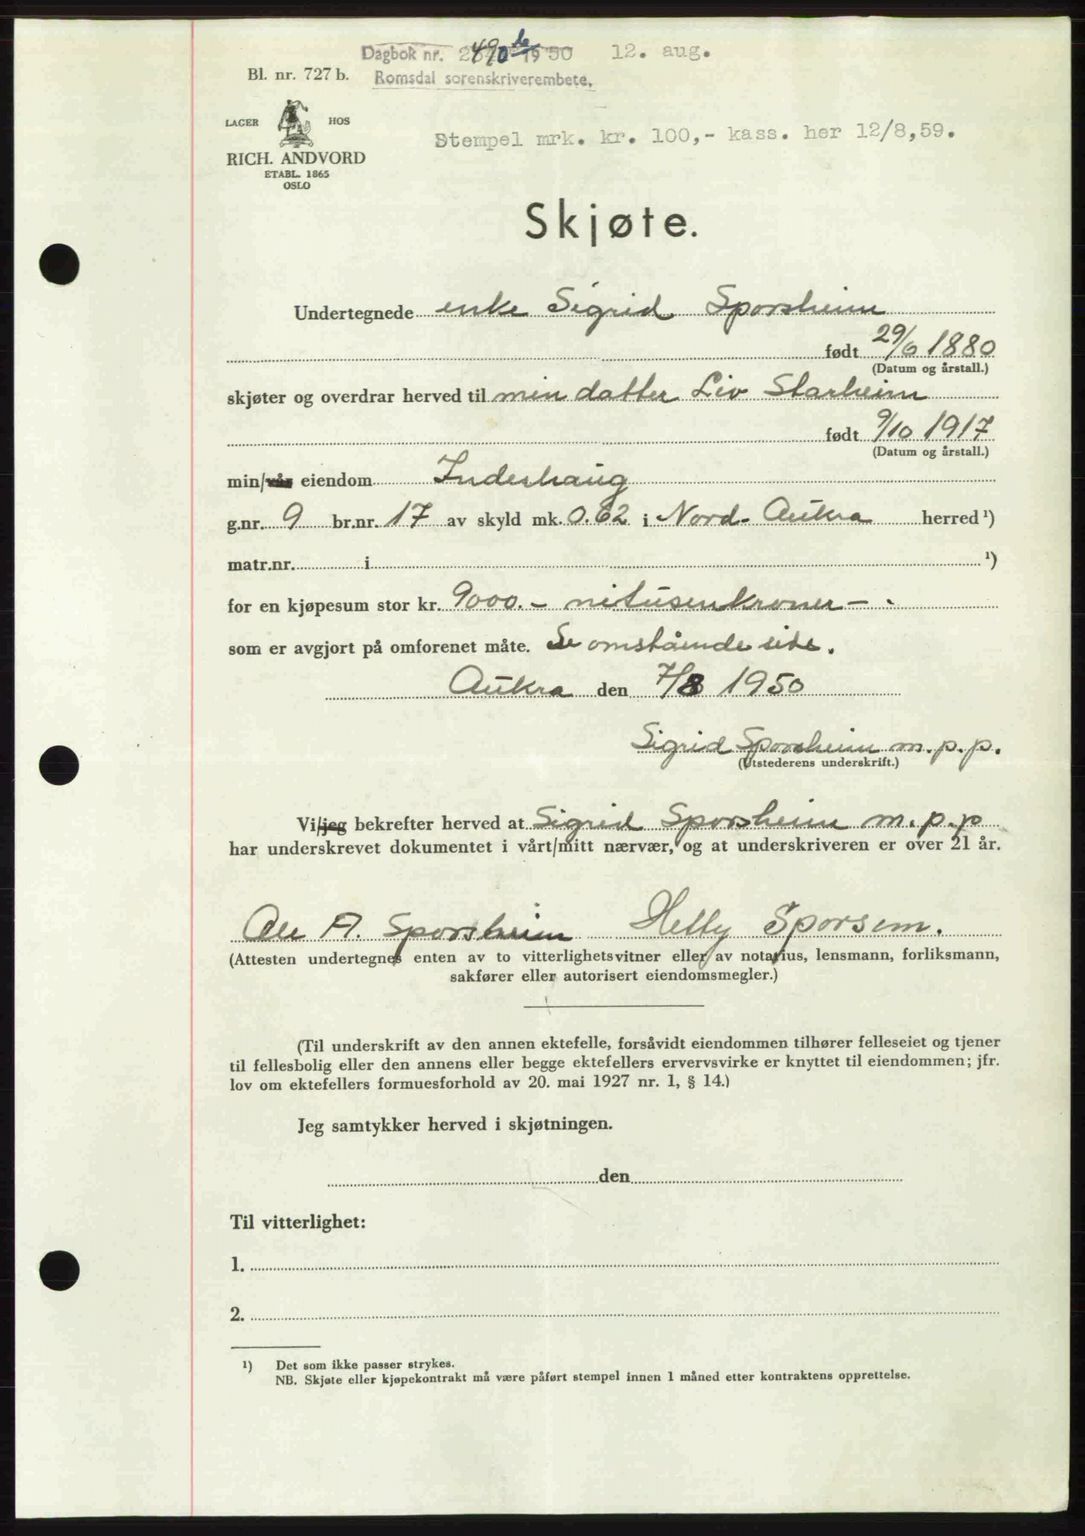 Dagbok nr. 2490 b 1950 12. aug.
Romsdal sorenskriverembete.
Bl. nr. 727 b.
LAGER HOS
RICH. ANDVORD
ETABL. 1865
OSLO
Stempel mrk. kr. 100,- kass. her 12/8,59.
Skjøte.
Undertegnede enke Sigrid Sporsheim
født 29/6 1880
(Datum og årstall.)
skjøter og overdrar herved til min datter Liv Starheim
født 9/10 1917
(Datum og årstall.)
min/vår eiendom Inderhaug
g.nr. 9 br.nr. 17 av skyld mk. 0.62 i Nord-Aukra herred ¹)
matr.nr. i ¹)
for en kjøpesum stor kr. 9000.- nitusenkroner -
som er avgjort på omforenet måte. Se omstående side.
Aukra den 7/8 1950
Sigrid Sporsheim m.p.p.
(Utstederens underskrift.)
Vi/jeg bekrefter herved at Sigrid Sporsheim m.p.p
har underskrevet dokumentet i vårt/mitt nærvær, og at underskriveren er over 21 år.
Ole A. Sporsheim Helly Sporsem.
(Attesten undertegnes enten av to vitterlighetsvitner eller av notarius, lensmann, forliksmann,
sakfører eller autorisert eiendomsmegler.)
(Til underskrift av den annen ektefelle, forsåvidt eiendommen tilhører felleseiet og tjener
til fellesbolig eller den annens eller begge ektefellers ervervsvirke er knyttet til eiendommen; jfr.
lov om ektefellers formuesforhold av 20. mai 1927 nr. 1, § 14.)
Jeg samtykker herved i skjøtningen.
den
Til vitterlighet:
1.
2.
¹) Det som ikke passer strykes.
NB. Skjøte eller kjøpekontrakt må være påført stempel innen 1 måned etter kontraktens opprettelse.